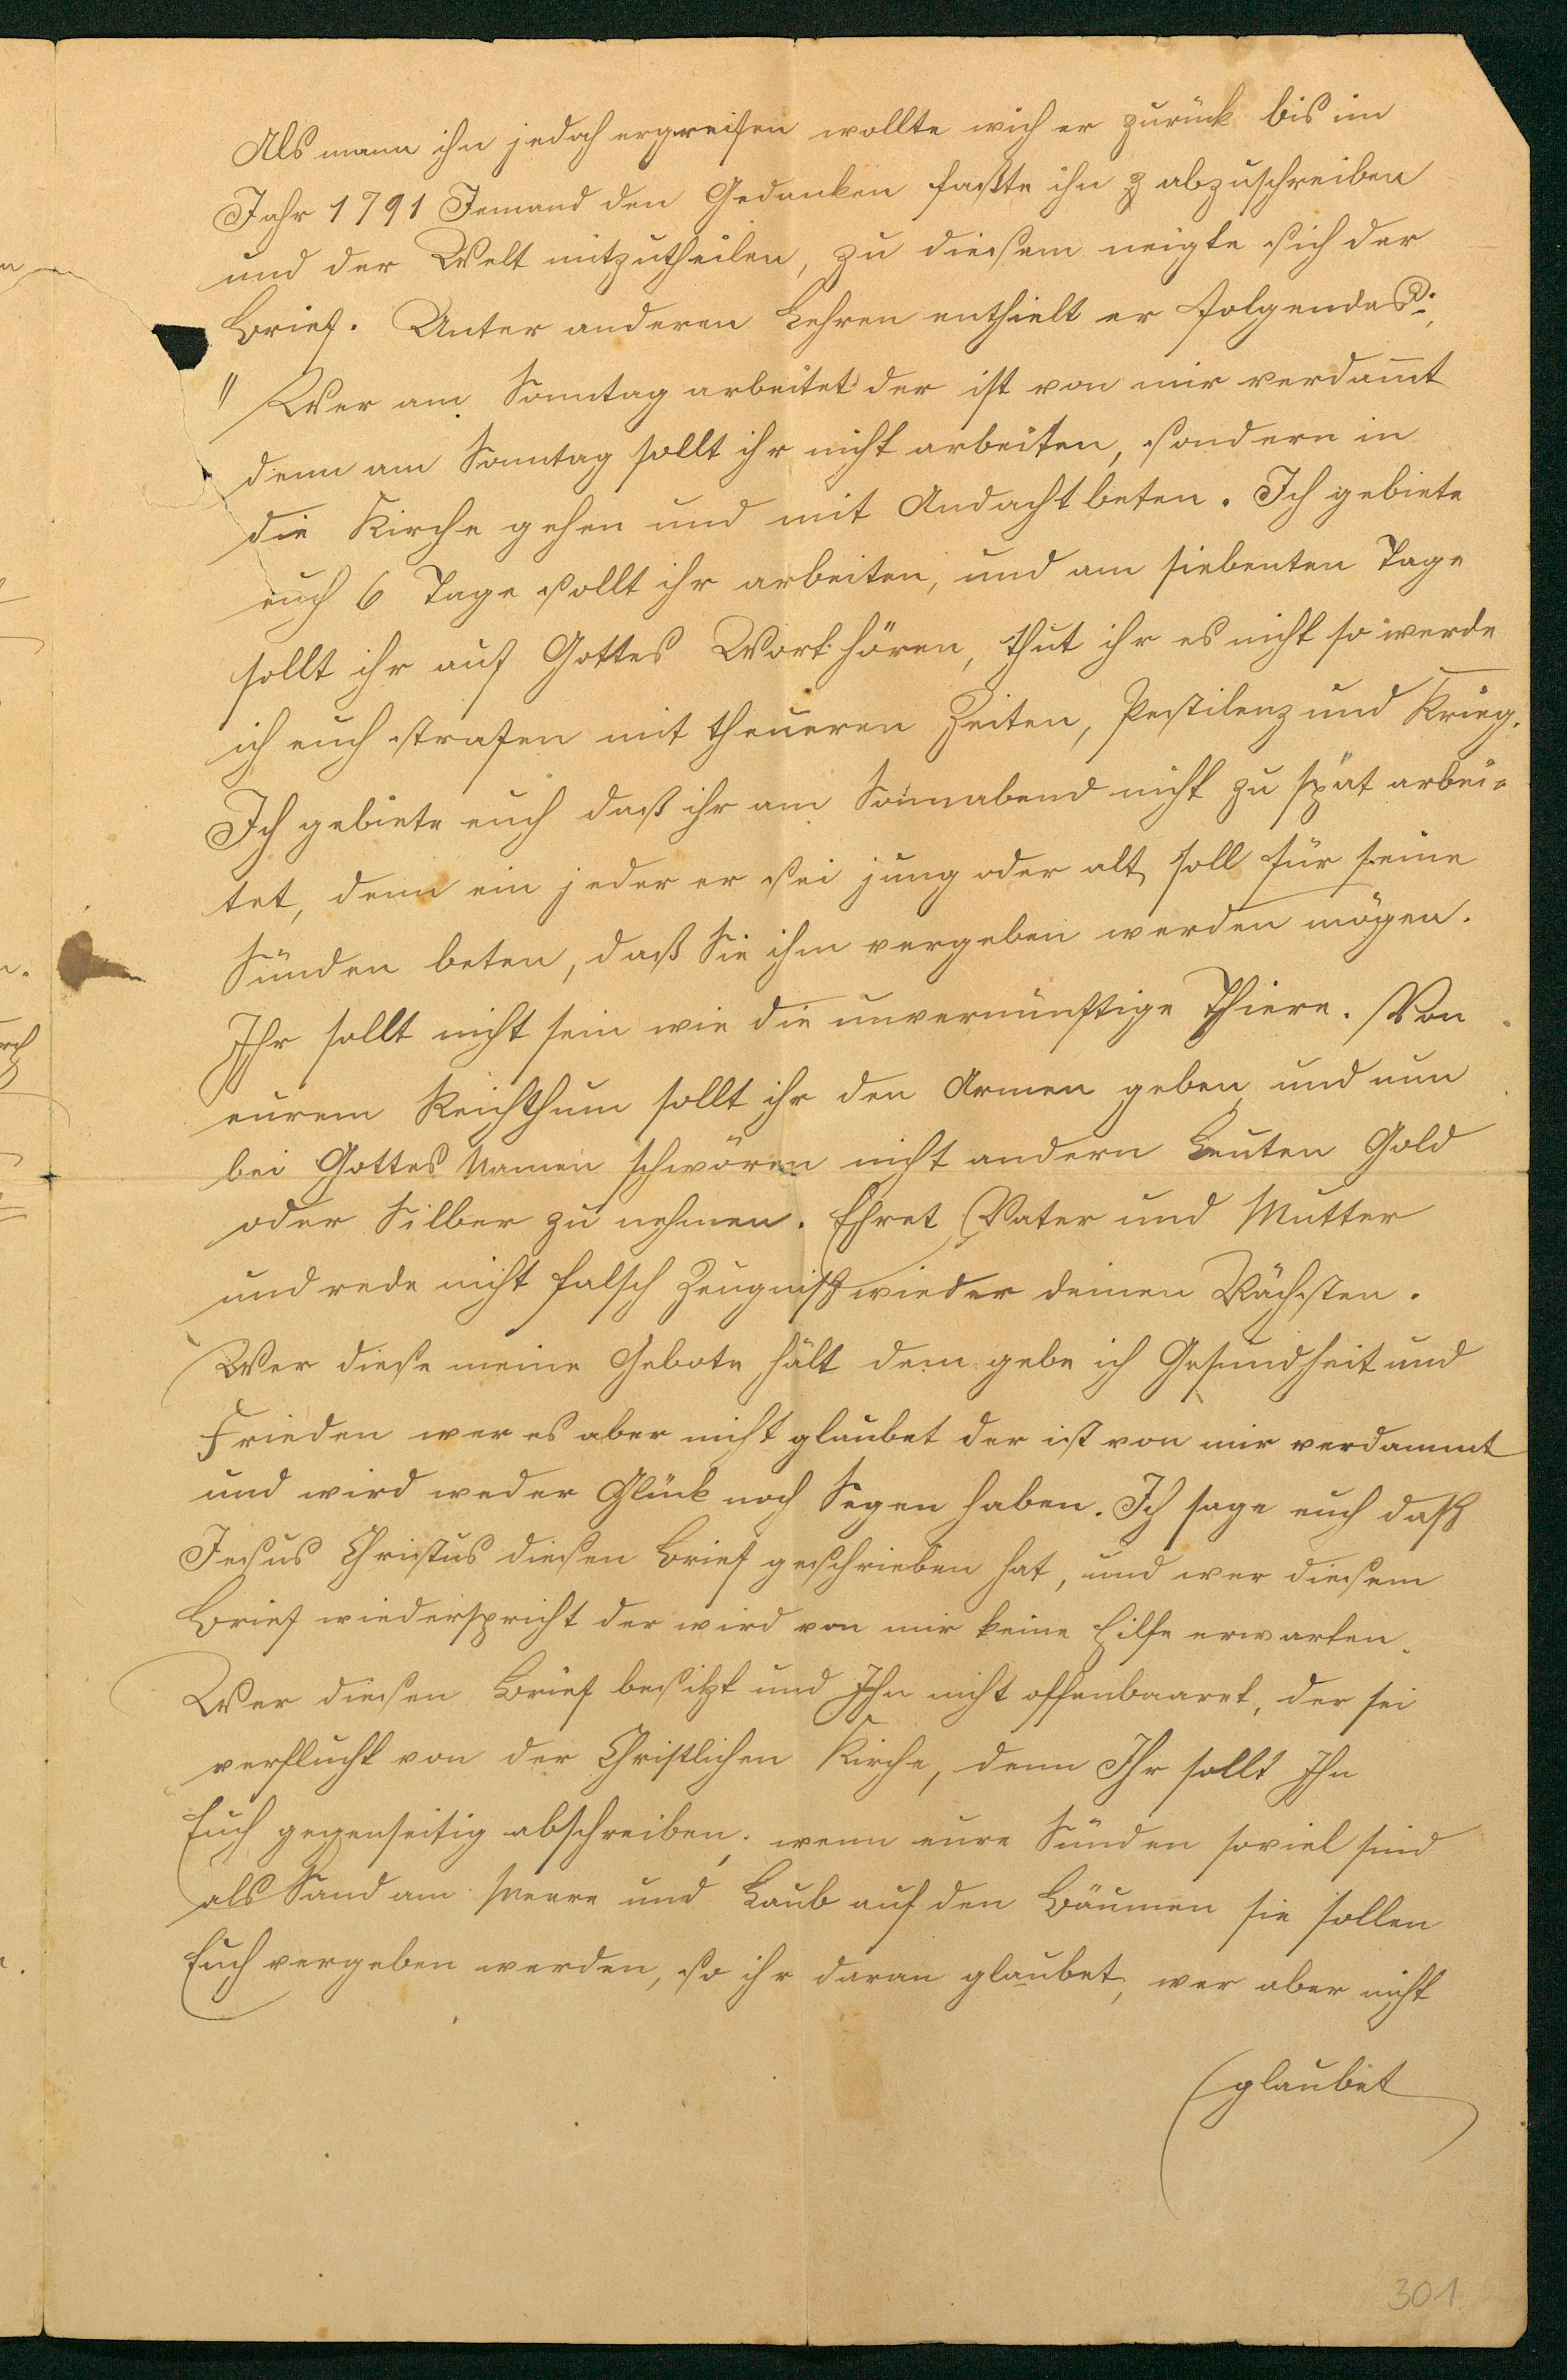 Als mann ihn jedoch ergreifen wollte wich er zurück bis im
Jahr 1791 Jemand den Gedanken faßte ihn z abzuschreiben
und der Welt mitzutheilen, zu diesem neigte sich der
Brief. Unter anderen Lehren enthielt er folgendes:
" Wer am Sonntag arbeitet der ist von mir verdam̄t
denn am Sonntag sollt ihr nicht arbeiten, sondern in
die Kirche gehen und mit Andacht beten. Ich gebiete
euch 6 Tage sollt ihr arbeiten, und am siebenten Tage
sollt ihr auf Gottes Wort hören, thut ihr es nicht so werde
ich euch strafen mit theueren Zeiten, Pestilenz und Krieg.
Ich gebiete euch daß ihr am Sonnabend nicht zu spät arbei-
tet, denn ein jeder er sei jung oder alt, soll für seine
Sünden beten, daß Sie ihm vergeben werden mögen.
Ihr sollt nicht sein wie die unvernünftige Thiere. Von
eurem Reichthum sollt ihr den Armen geben und nun
bei Gottes Namen schwören nicht andern Leuten Gold
oder Silber zu nehmen. Ehret Vater und Mutter
und rede nicht falsch Zeugniß wieder deinen Nächsten.
Wer diese meine Gebote hält dem gebe ich Gesundheit und
Frieden wer es aber nicht glaubet der ist von mir verdammt
und wird weder Glück noch Segen haben. Ich sage euch daß
Jesus Christus diesen Brief geschrieben hat, und wer diesem
Brief wiederspricht der wird von mir keine Hilfe erwarten.
Wer diesen Brief besitzt und Ihn nicht offenbaaret, der sei
verflucht von der Christlichen Kirche, denn Ihr sollt Ihn
Euch gegenseitig abschreiben, wenn eure Sünden soviel sind
als Sand am Meere und Laub auf den Bäumen sie sollen
Euch vergeben werden, so ihr daran glaubet, wer aber nicht
glaubet
301